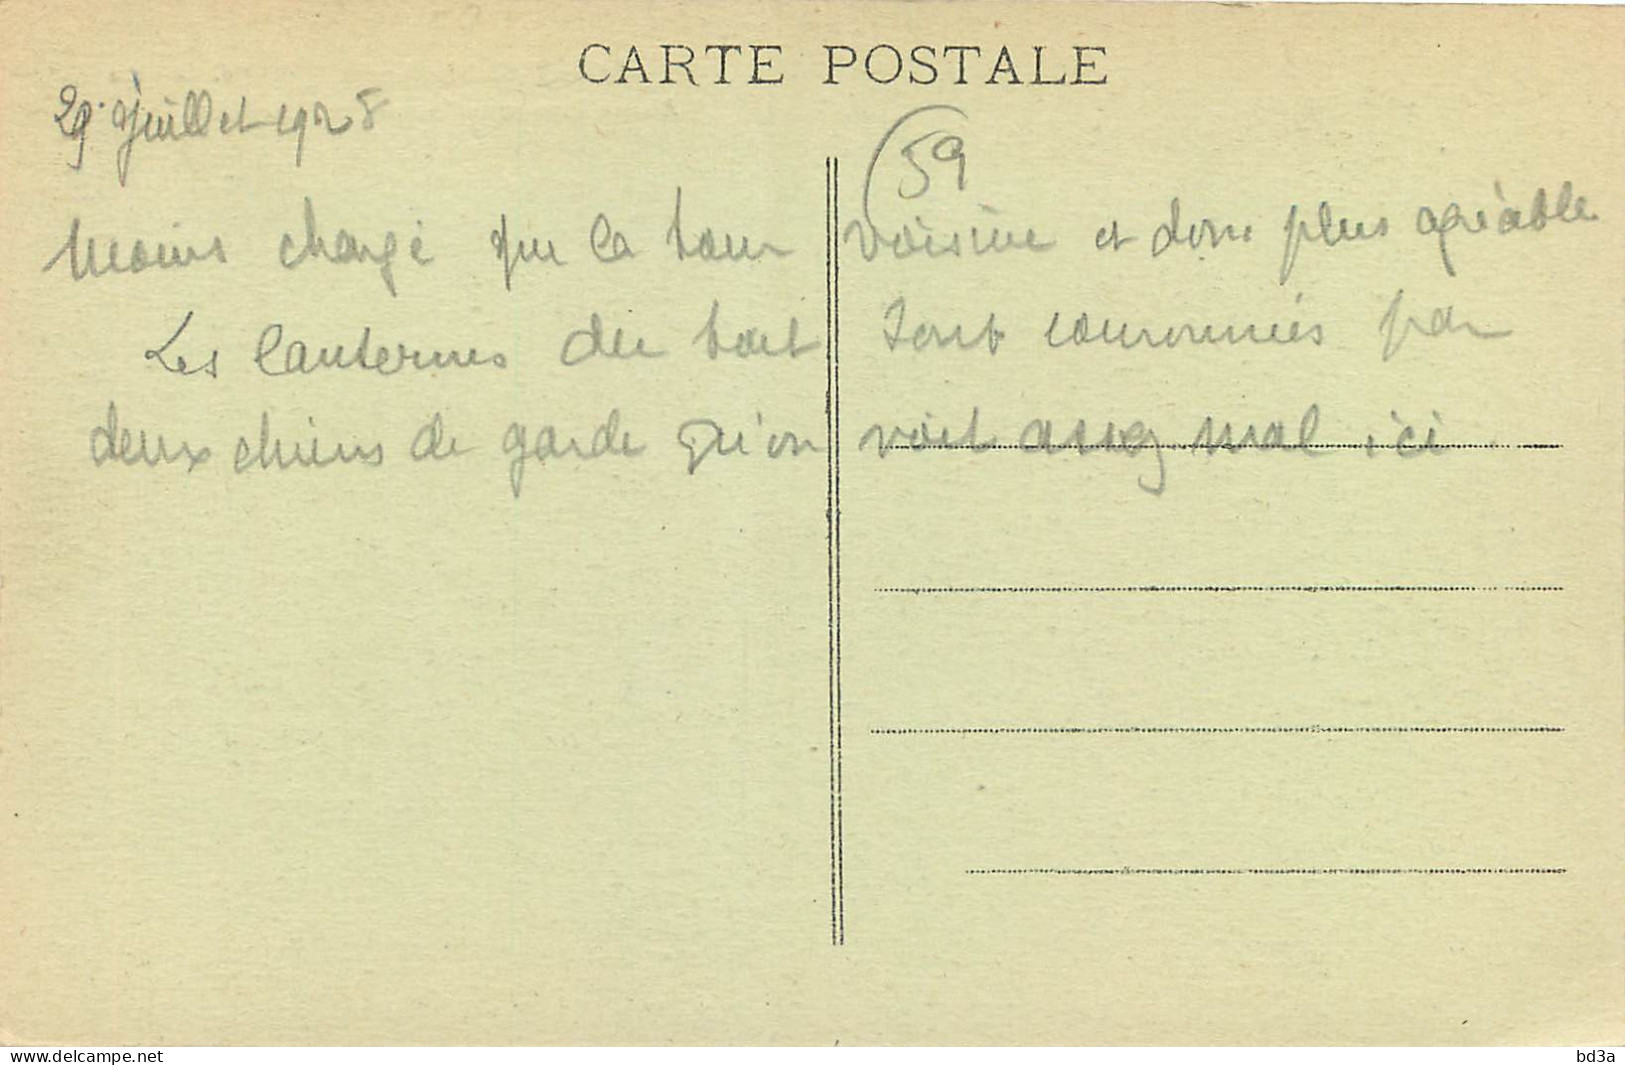 CARTE POSTALE
29 Juillet 1928
59
Moins chargé que la tour voisine et donc plus agréable
Les lanternes du toit sont couronnées par
deux chiens de garde qu'on voit assez mal ici
www.delcampe.net
bd3a